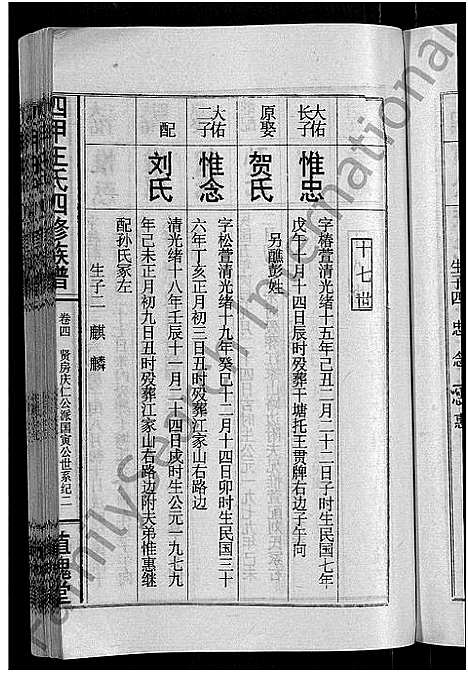 十七世
大佑长子
惟忠
字椿萱清光绪十五年己丑二月二十二日子时生民国七年
戊午十月十四日辰时殁葬干塘托王贯牌右边子午向
原娶
贺氏
另醮彭姓
大佑二子
惟念
字松萱清光绪十九年癸巳十二月十四日卯时生民国三十
六年丁亥正月初三日丑时殁葬江家山右路边
配
刘氏
清光绪十八年壬辰十一月二十四日戌时生公元一九七九
年己未正月初九日丑时殁葬江家山右路边附夫弟惟惠继
配孙氏冢左
生子二 麒 麟
四甲王氏四修族谱
卷四 贤房庆仁公派国寅公世系纪二
植槐堂
生子四 忠 念 惠
FamilySearch International